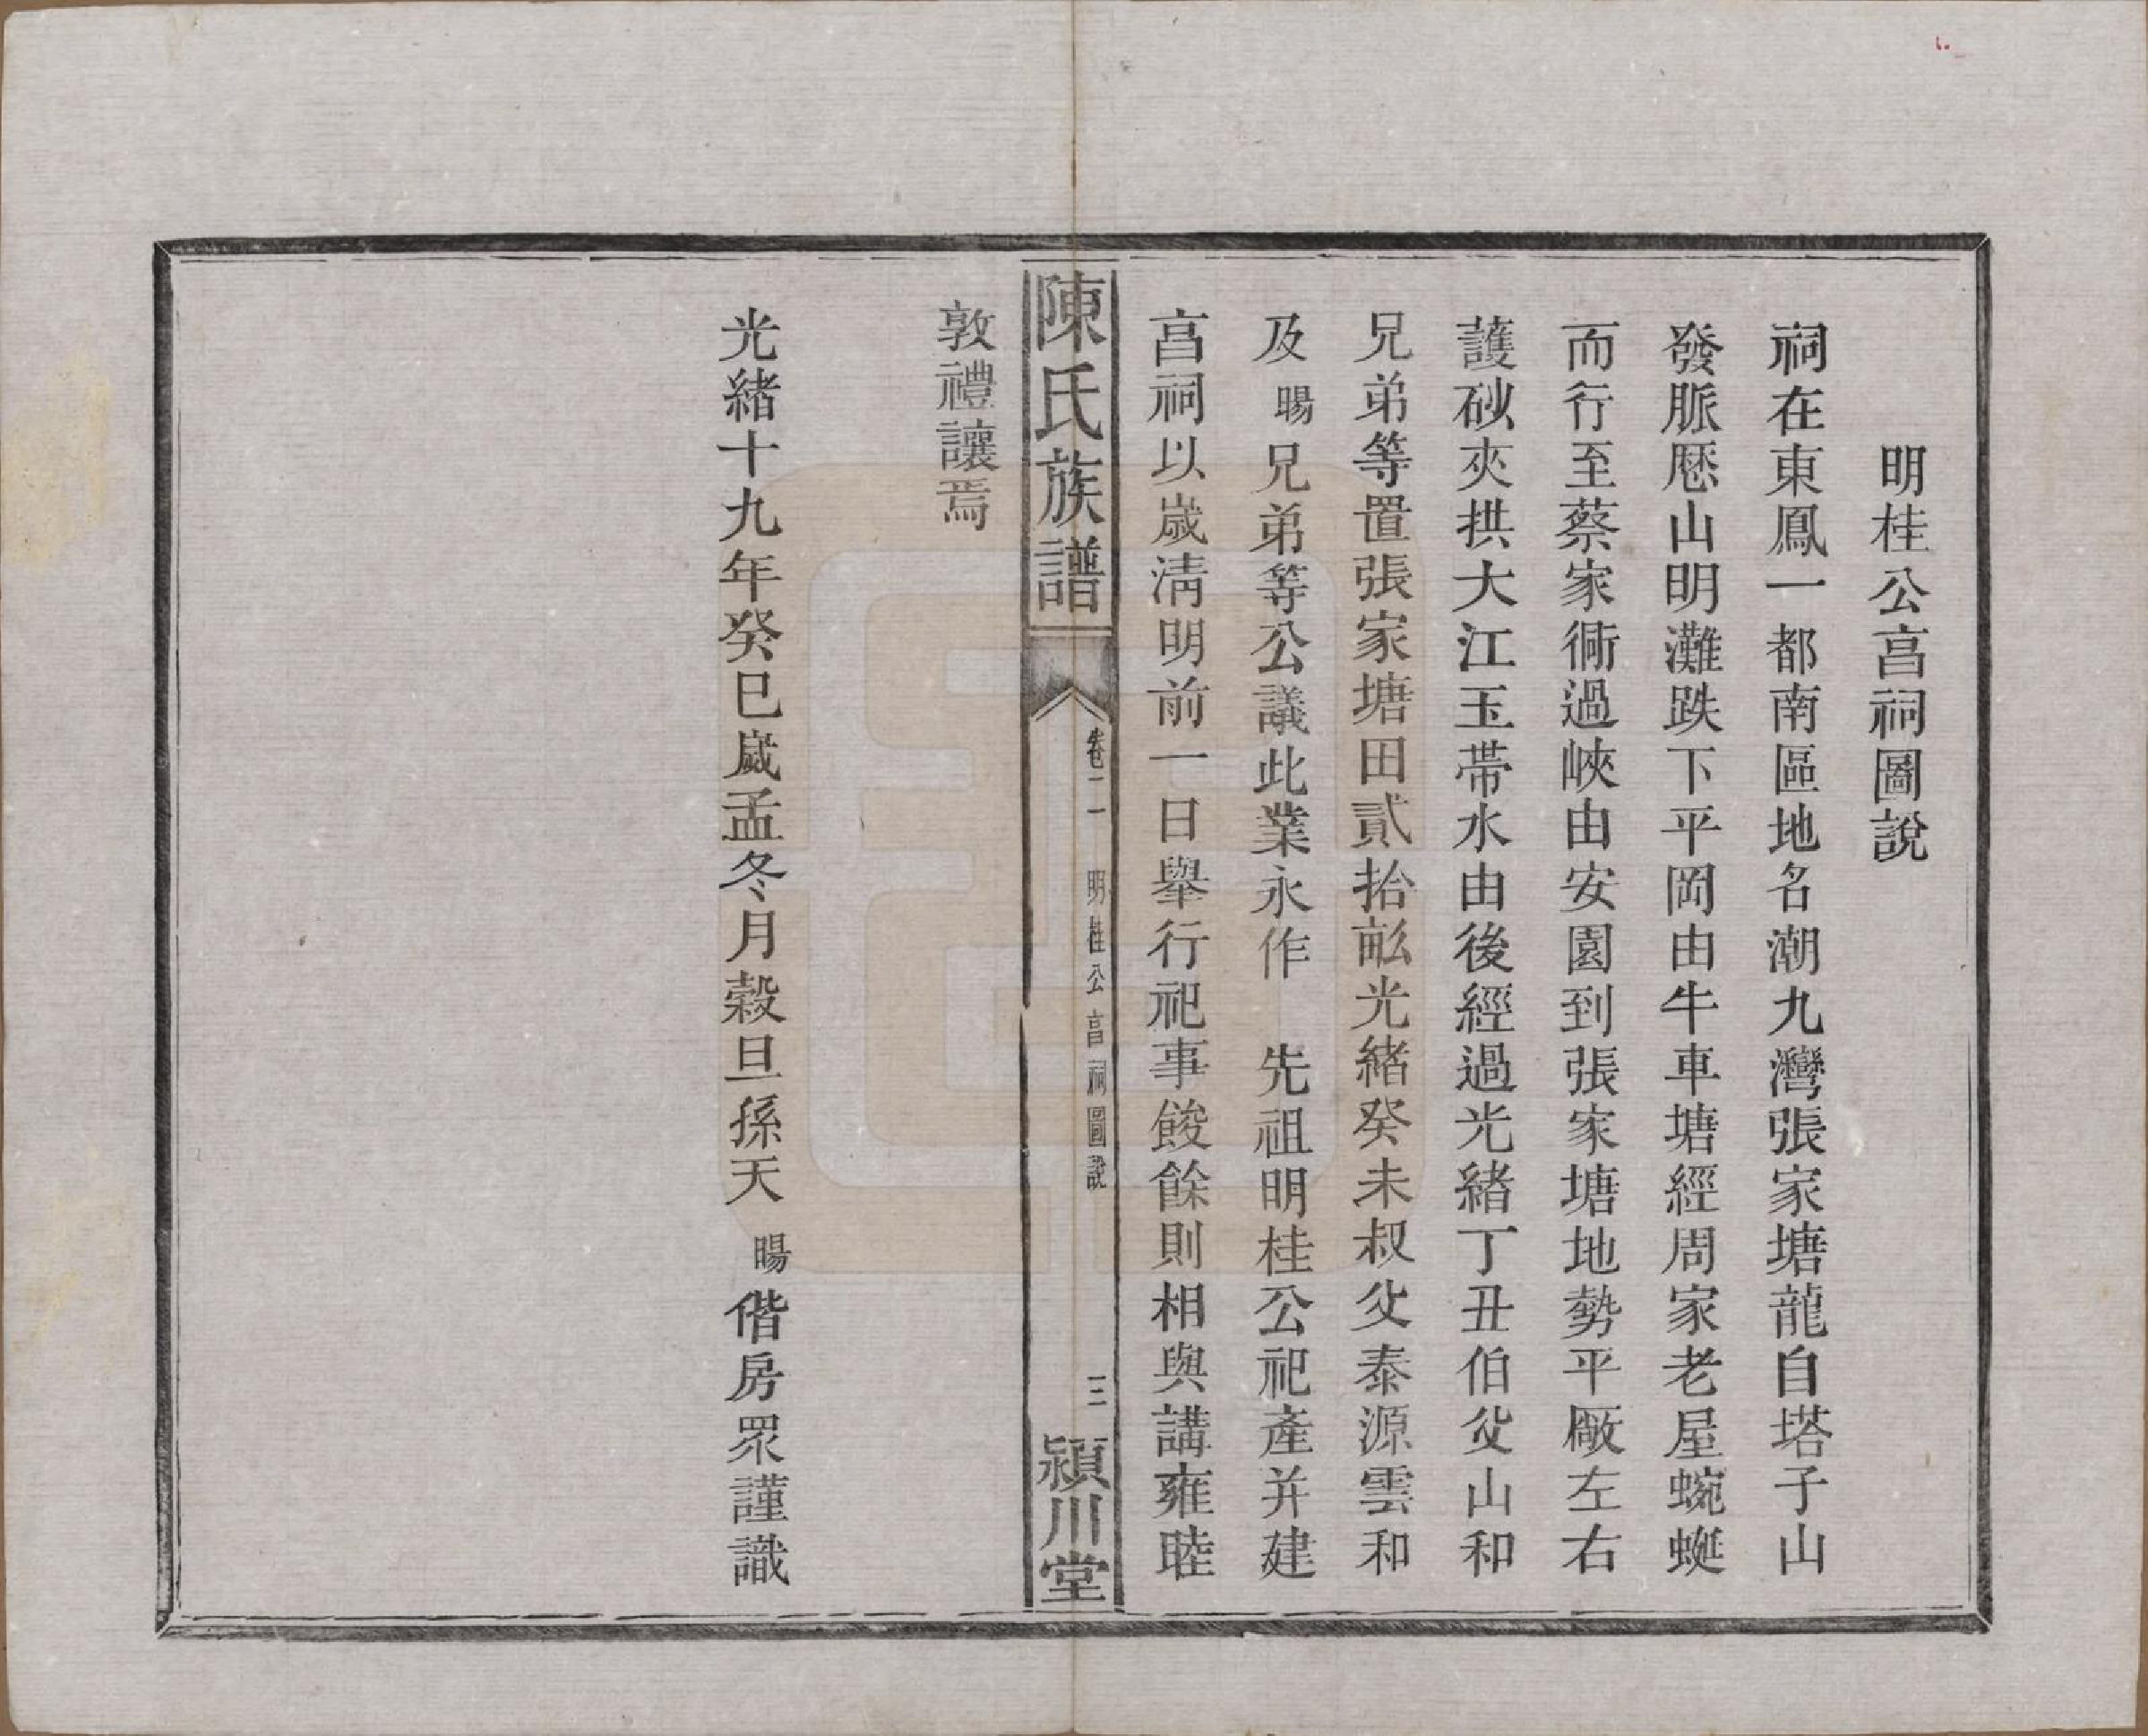 明桂公亯祠圖說
祠在東鳳一都南區地名潮九灣張家塘龍自塔子山
發脈愿山明灘跌下平岡由牛車塘經周家老屋蜿蜒
而行至蔡家衕過峽由安園到張家塘地勢平厰左右
護砂夾拱大江玉帶水由後經過光緒丁丑伯父山和
兄弟等置張家塘田貳拾畝光緒癸未叔父泰源雲和
及暘兄弟等公議此業永作 先祖明桂公祀產并建
亯祠以歲淸明前一日舉行祀事餕餘則相與講雍睦
陳氏族譜 卷一 明桂公亯祠圖說 三 潁川堂
敦禮讓焉
光緒十九年癸巳歲孟冬月穀旦孫天暘偕房眾謹識